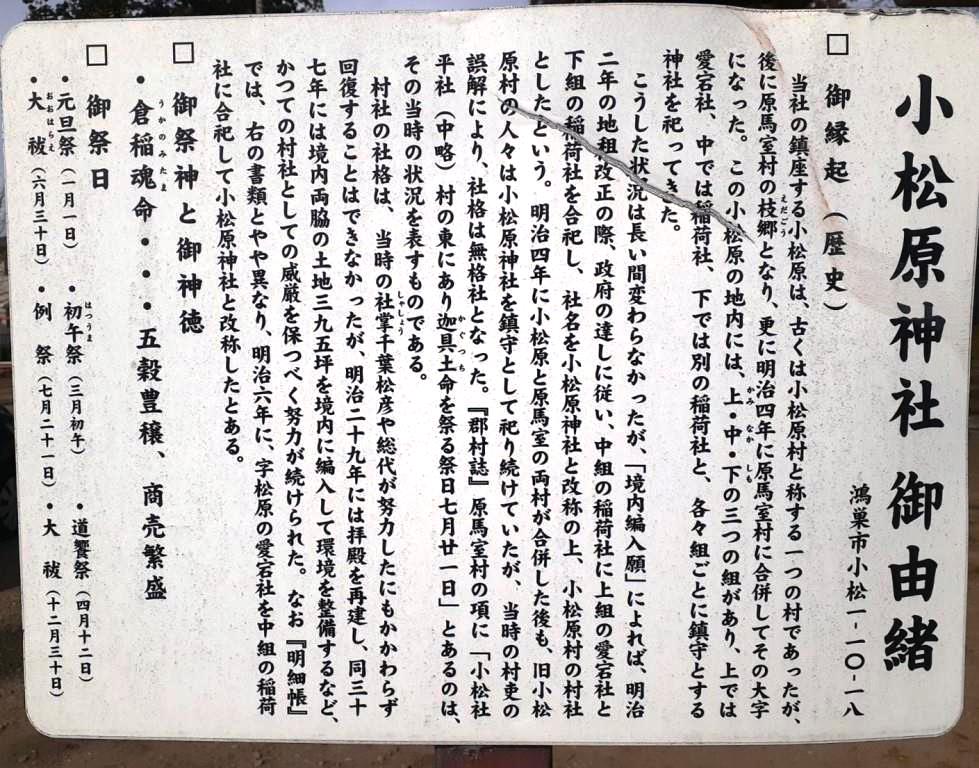 小松原神社 御由緒
鴻巣市小松一-一〇-一八
□ 御縁起（歴史）
当社の鎮座する小松原は、古くは小松原村と称する一つの村であったが、
後に原馬室村の枝郷となり、更に明治四年に原馬室村に合併してその大字
えだごう
になった。この小松原の地内には、上・中・下の三つの組があり、上では
かみ なか しも
愛宕社、中では稲荷社、下では別の稲荷社と、各々組ごとに鎮守とする
神社を祀ってきた。
こうした状況は長い間変わらなかったが、「境内編入願」によれば、明治
二年の地租改正の際、政府の達しに従い、中組の稲荷社に上組の愛宕社と
下組の稲荷社を合祀し、社名を小松原神社と改称の上、小松原村の村社
としたという。明治四年に小松原と原馬室の両村が合併した後も、旧小松
原村の人々は小松原神社を鎮守として祀り続けていたが、当時の村吏の
誤解により、社格は無格社となった。『郡村誌』原馬室村の項に「小松社
平社（中略）村の東にあり迦具土命を祭る祭日七月廿一日」とあるのは、
かぐつち
その当時の状況を表すものである。
村社の社格は、当時の社掌千葉松彦や総代が努力したにもかかわらず
しゃしょう
回復することはできなかったが、明治二十九年には拝殿を再建し、同三十
七年には境内両脇の土地三九五坪を境内に編入して環境を整備するなど、
かつての村社としての威厳を保つべく努力が続けられた。なお『明細帳』
では、右の書類とやや異なり、明治六年に、字松原の愛宕社を中組の稲荷
社に合祀して小松原神社と改称したとある。
□ 御祭神と御神徳
・倉稲魂命・・・五穀豊穣、商売繁盛
うかのみたま
□ 御祭日
・元旦祭（一月一日） ・初午祭（三月初午） ・道饗祭（四月十二日）
はつうま
・大 祓（六月三十日） ・例 祭（七月二十一日） ・大 祓（十二月三十日）
おおはらえ